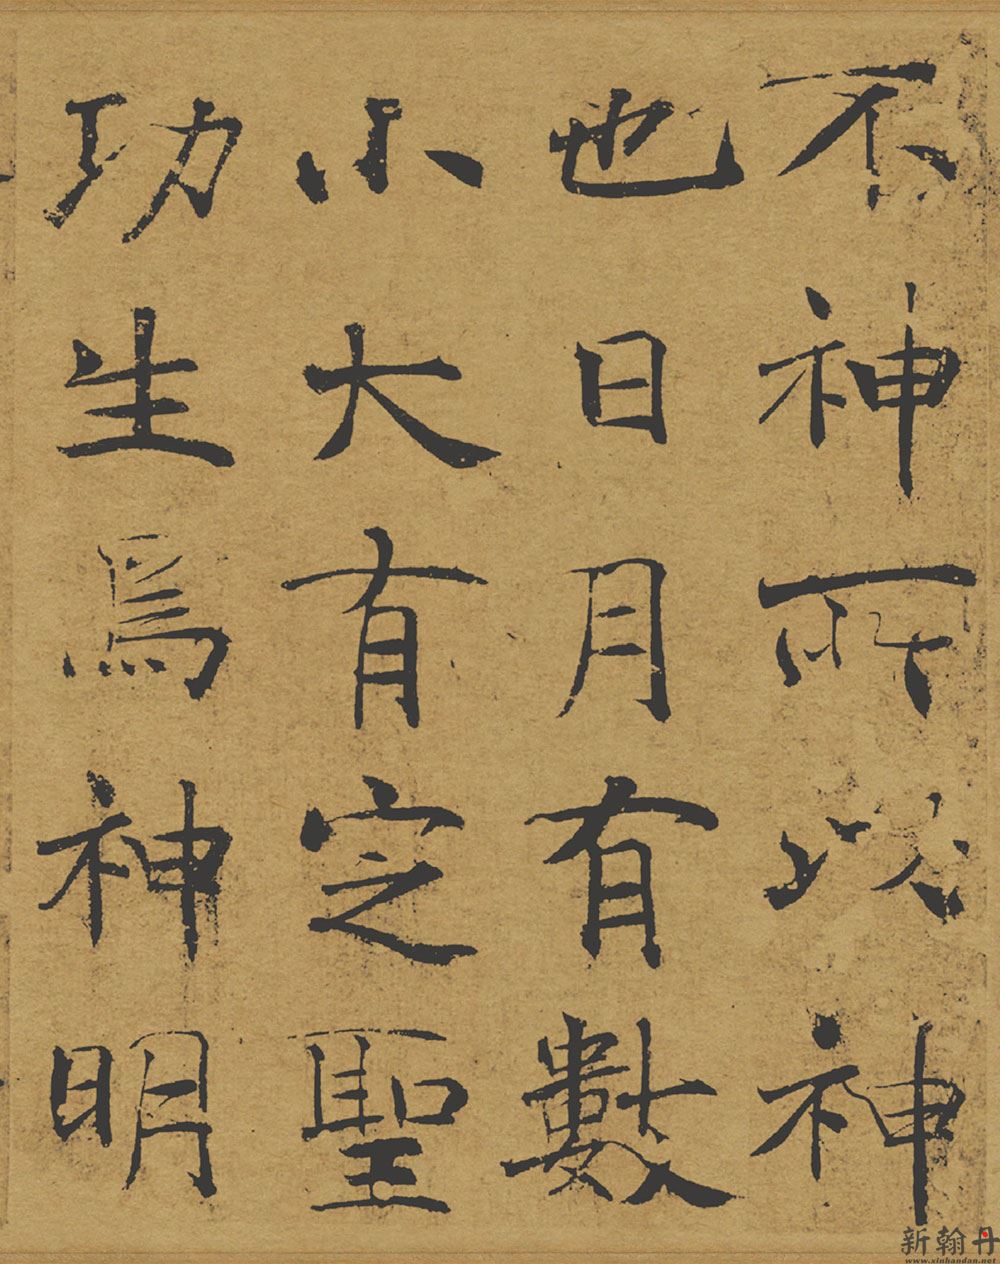 不神所以神
也日月有數
小大有定聖
功生焉神明
新翰丹
www.xinhandan.net